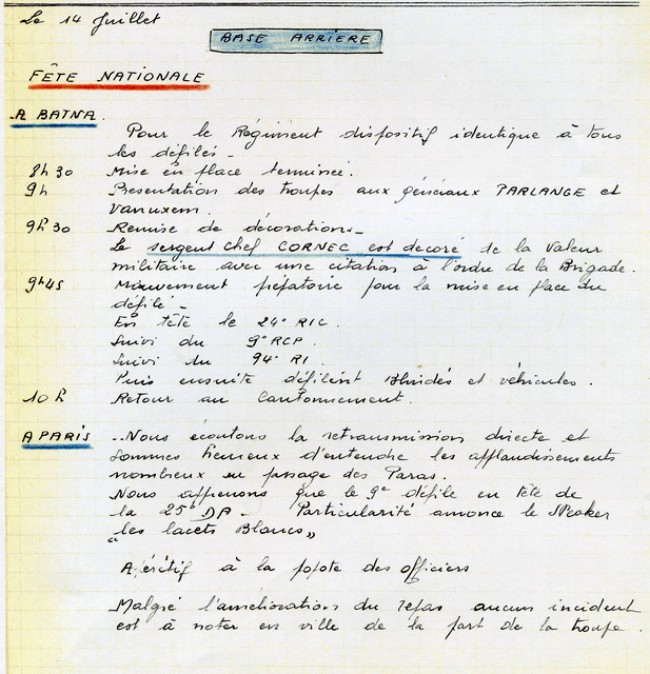 Le 14 Juillet
BASE ARRIERE
FÊTE NATIONALE
A BATNA.
Pour le Régiment dispositif identique à tous
les défilés -
8h30 Mise en place terminée.
9h Présentation des troupes aux généraux PARLANGE et
Vanuxem.
9h30 Remise de décorations -
Le sergent chef CORNEC est decoré de la Valeur
militaire avec une citation à l'ordre de la Brigade.
9h45 Mouvement préfatoire pour la mise en place du
défilé -
En tête le 24e RIC.
Suivi du 9e RCP.
Suivi du 94e RI.
Puis ensuite défilent Blindés et véhicules.
10h Retour au Cantonnement.
A PARIS ..Nous écoutons la retransmission directe et
sommes heureux d'entendre les applaudissements
nombreux au passage des Paras.
Nous apprenons que le 9e défile en tête de
la 25e DA - Particularité annonce le Speaker
"les lacets Blancs"
Apéritif à la popote des officiers
Malgré l'améliorations du repas aucun incident
est à noter en ville de la part de la troupe.